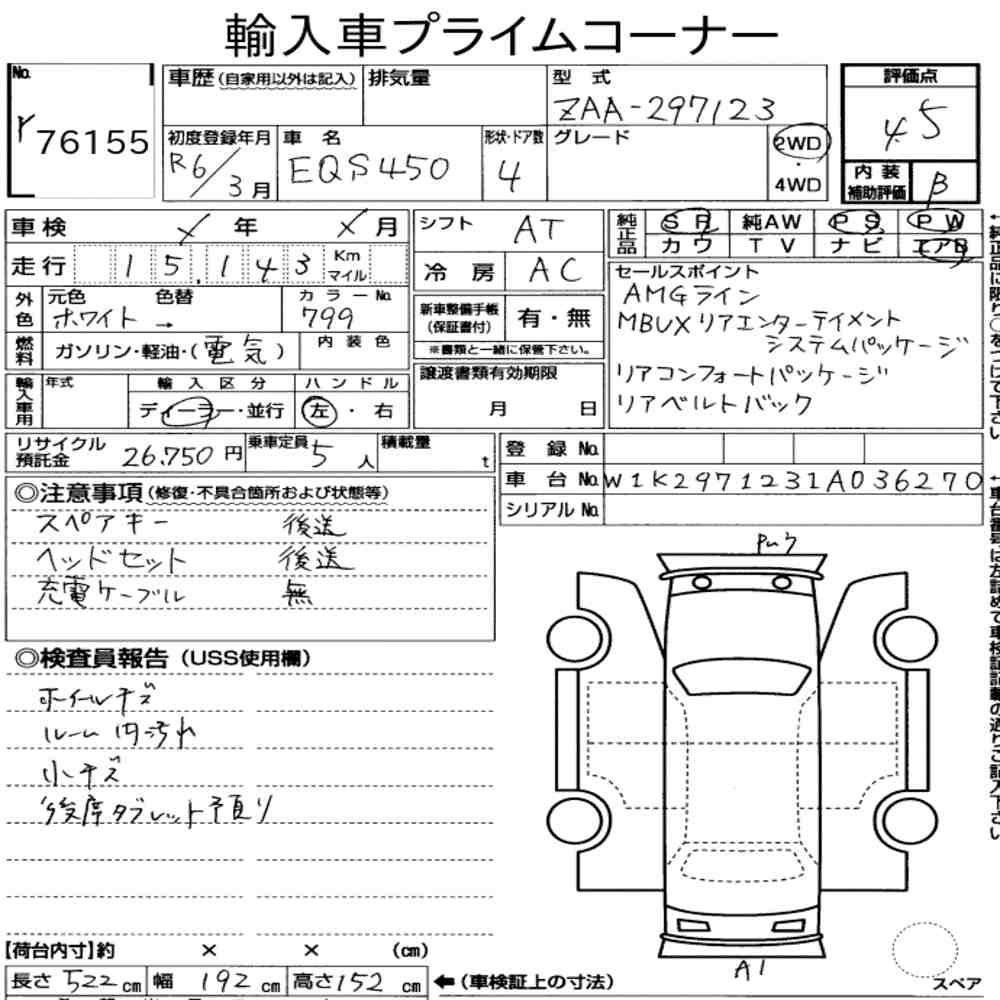 輸入車プライムコーナー
No.
r 76155
車歴(自家用以外は記入)
排気量
型 式
ZAA-297123
評価点
4.5
初度登録年月
R6/3月
車 名
EQS450
形状・ドア数
4
グレード
2WD
・
4WD
内装補助評価
B
車検 年 月
シフト
AT
純正品
SR 純AW PS PW
カワ TV ナビ エアB
走行 15,143 Km マイル
冷 房
AC
セールスポイント
AMGライン
MBUXリアエンターテイメント
システムパッケージ
リアコンフォートパッケージ
リアベルトバック
外色
元色 色替
ホワイト →
カラーNo.
799
新車整備手帳
(保証書付)
有・無
※書類と一緒に保管下さい。
燃料
ガソリン・軽油・(電気)
内装色
譲渡書類有効期限
月 日
輸入車用
年式
輸入区分
ディーラー・並行
ハンドル
左・右
リサイクル預託金
26,750円
乗車定員
5人
積載量
t
登 録 No.
車 台 No. W1K2971231A036270
シリアル No.
◎注意事項(修復・不具合箇所および状態等)
スペアキー 後送
ヘッドセット 後送
充電ケーブル 無
◎検査員報告(USS使用欄)
ホイールキズ
ルーム内汚れ
小キズ
後席タブレット預り
A1
スペア
【荷台内寸】約 × × (cm)
長さ 522cm 幅 192cm 高さ 152cm
←(車検証上の寸法)
↑純正品に限り○をつけて下さい
↑車台番号は左詰めで車検証記載の通りご記入下さい